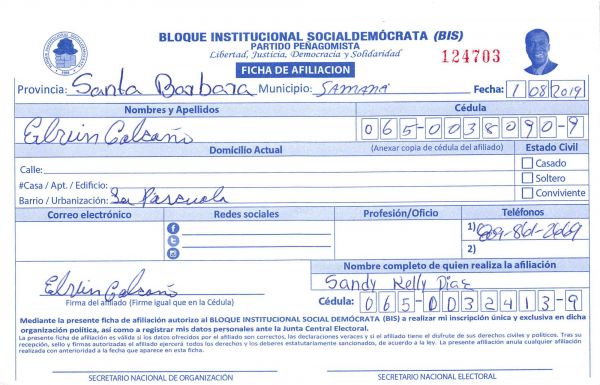 BLOQUE INSTITUCIONAL SOCIALDEMÓCRATA (BIS)
PARTIDO PEÑAGOMISTA
Libertad, Justicia, Democracia y Solidaridad
124703
FICHA DE AFILIACION
Provincia: Santa Barbara Municipio: SAMANÁ Fecha: 1/08/2019
Nombres y Apellidos Cédula
Elruin Calcaño 065-0038090-9
Domicilio Actual (Anexar copia de cédula del afiliado) Estado Civil
Calle: Casado
#Casa / Apt. / Edificio: Soltero
Barrio / Urbanización: La Pascuala Conviviente
Correo electrónico Redes sociales Profesión/Oficio Teléfonos
1) 829-861-2669
2)
Nombre completo de quien realiza la afiliación
Elruin Calcaño Sandy Kelly Diaz
Firma del afiliado (Firme igual que en la Cédula) Cédula: 065-0032413-9
Mediante la presente ficha de afiliación autorizo al BLOQUE INSTITUCIONAL SOCIAL DEMÓCRATA (BIS) a realizar mi inscripción única y exclusiva en dicha
organización política, así como a registrar mis datos personales ante la Junta Central Electoral.
La presente ficha de afiliación será válida si los datos ofrecidos por el afiliado son correctos, las declaraciones veraces y si el afiliado tiene el disfrute de sus derechos civiles y políticos. Tras su
recepción, sello y firmas autorizadas el afiliado ejercerá todos los derechos y los deberes estatutariamente sancionados, de acuerdo a la ley. La presente afiliación anula cualquier afiliación
realizada con anterioridad a la fecha que aparece en esta ficha.
SECRETARIO NACIONAL DE ORGANIZACIÓN SECRETARIO NACIONAL ELECTORAL